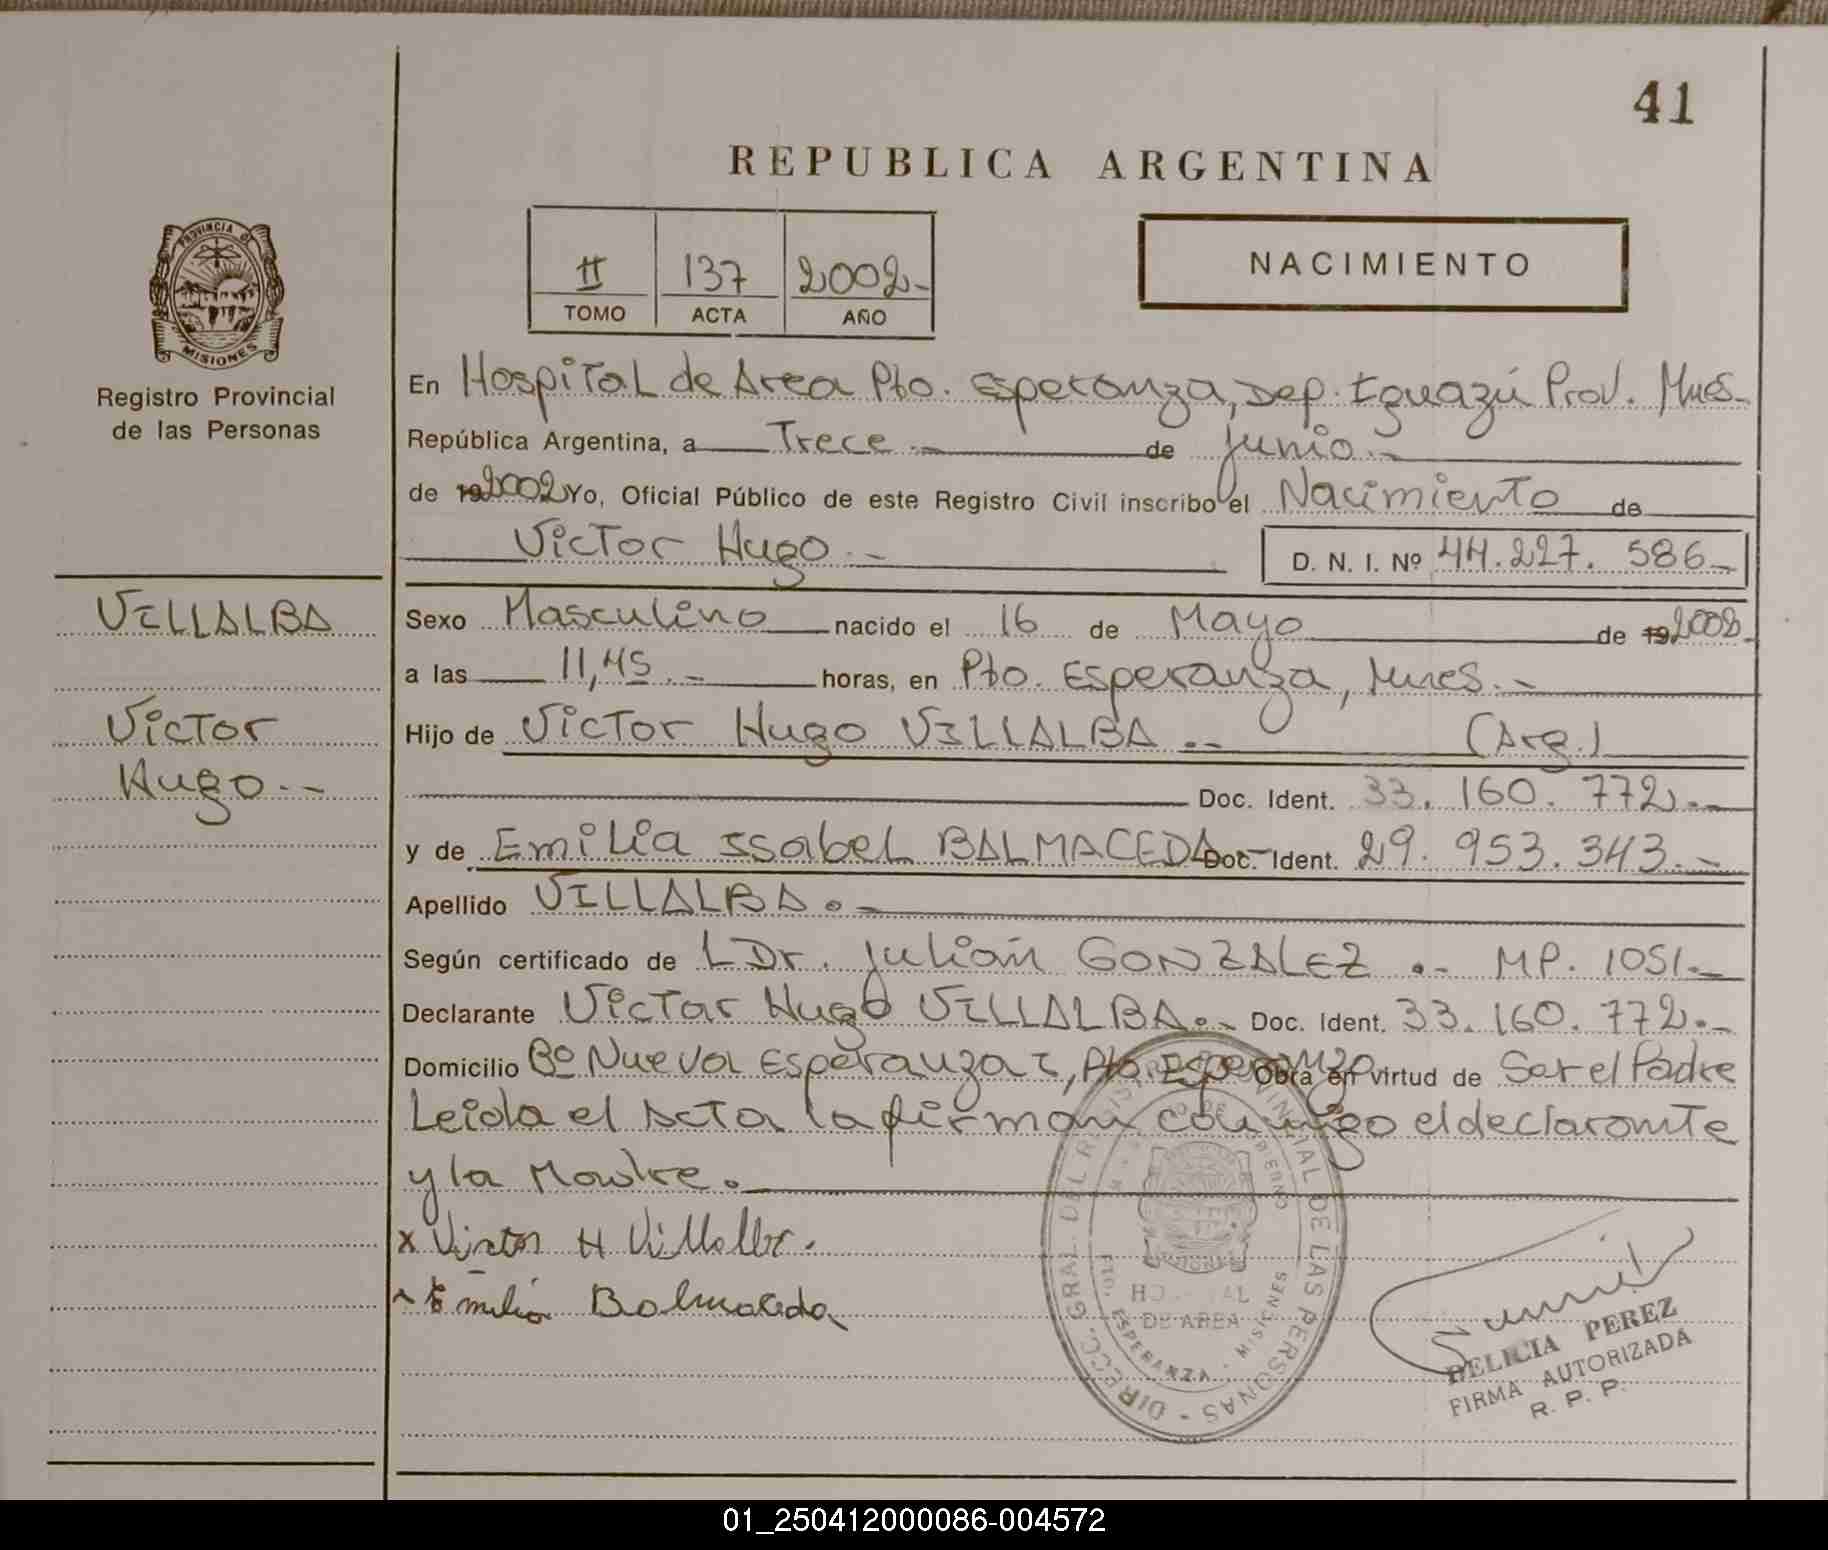 41
REPUBLICA ARGENTINA
II 137 2002-
TOMO ACTA AÑO
NACIMIENTO
PROVINCIA DE
MISIONES
Registro Provincial
de las Personas
En Hospital de Area Pto. Esperanza, Dep. Iguazú Prov. Mnes.
República Argentina, a Trece.- de junio.-
de 192002 Yo, Oficial Público de este Registro Civil inscribo el Nacimiento de
Victor Hugo.- D. N. I. Nº 44.227.586-
VILLALBA
Victor
Hugo.-
Sexo Masculino nacido el 16 de Mayo de 192002-
a las 11,45.- horas, en Pto. Esperanza, Mnes.-
Hijo de Victor Hugo VILLALBA.- (Arg.)
Doc. Ident. 33.160.772.-
y de Emilia Issabel BALMACEDA.- Doc. Ident. 29.953.343.-
Apellido VILLALBA.-
Según certificado de L Dr. Julián GONZALEZ.- MP. 1051.-
Declarante Victar Hugo VILLALBA.- Doc. Ident. 33.160.772.-
Domicilio Bº Nueva Esperanza, Pto. Esperanza Obra en virtud de Ser el Padre
Leida el Acta la firman conmigo el declarante
y la Madre.
x Victor H Villalba.
Emilia Balmaceda
DIRECC. GRAL. DEL REGISTRO PROVINCIAL DE LAS PERSONAS
HOSPITAL
DE AREA
ESPERANZA - MISIONES
DELICIA PEREZ
FIRMA AUTORIZADA
R. P. P.
01_250412000086-004572